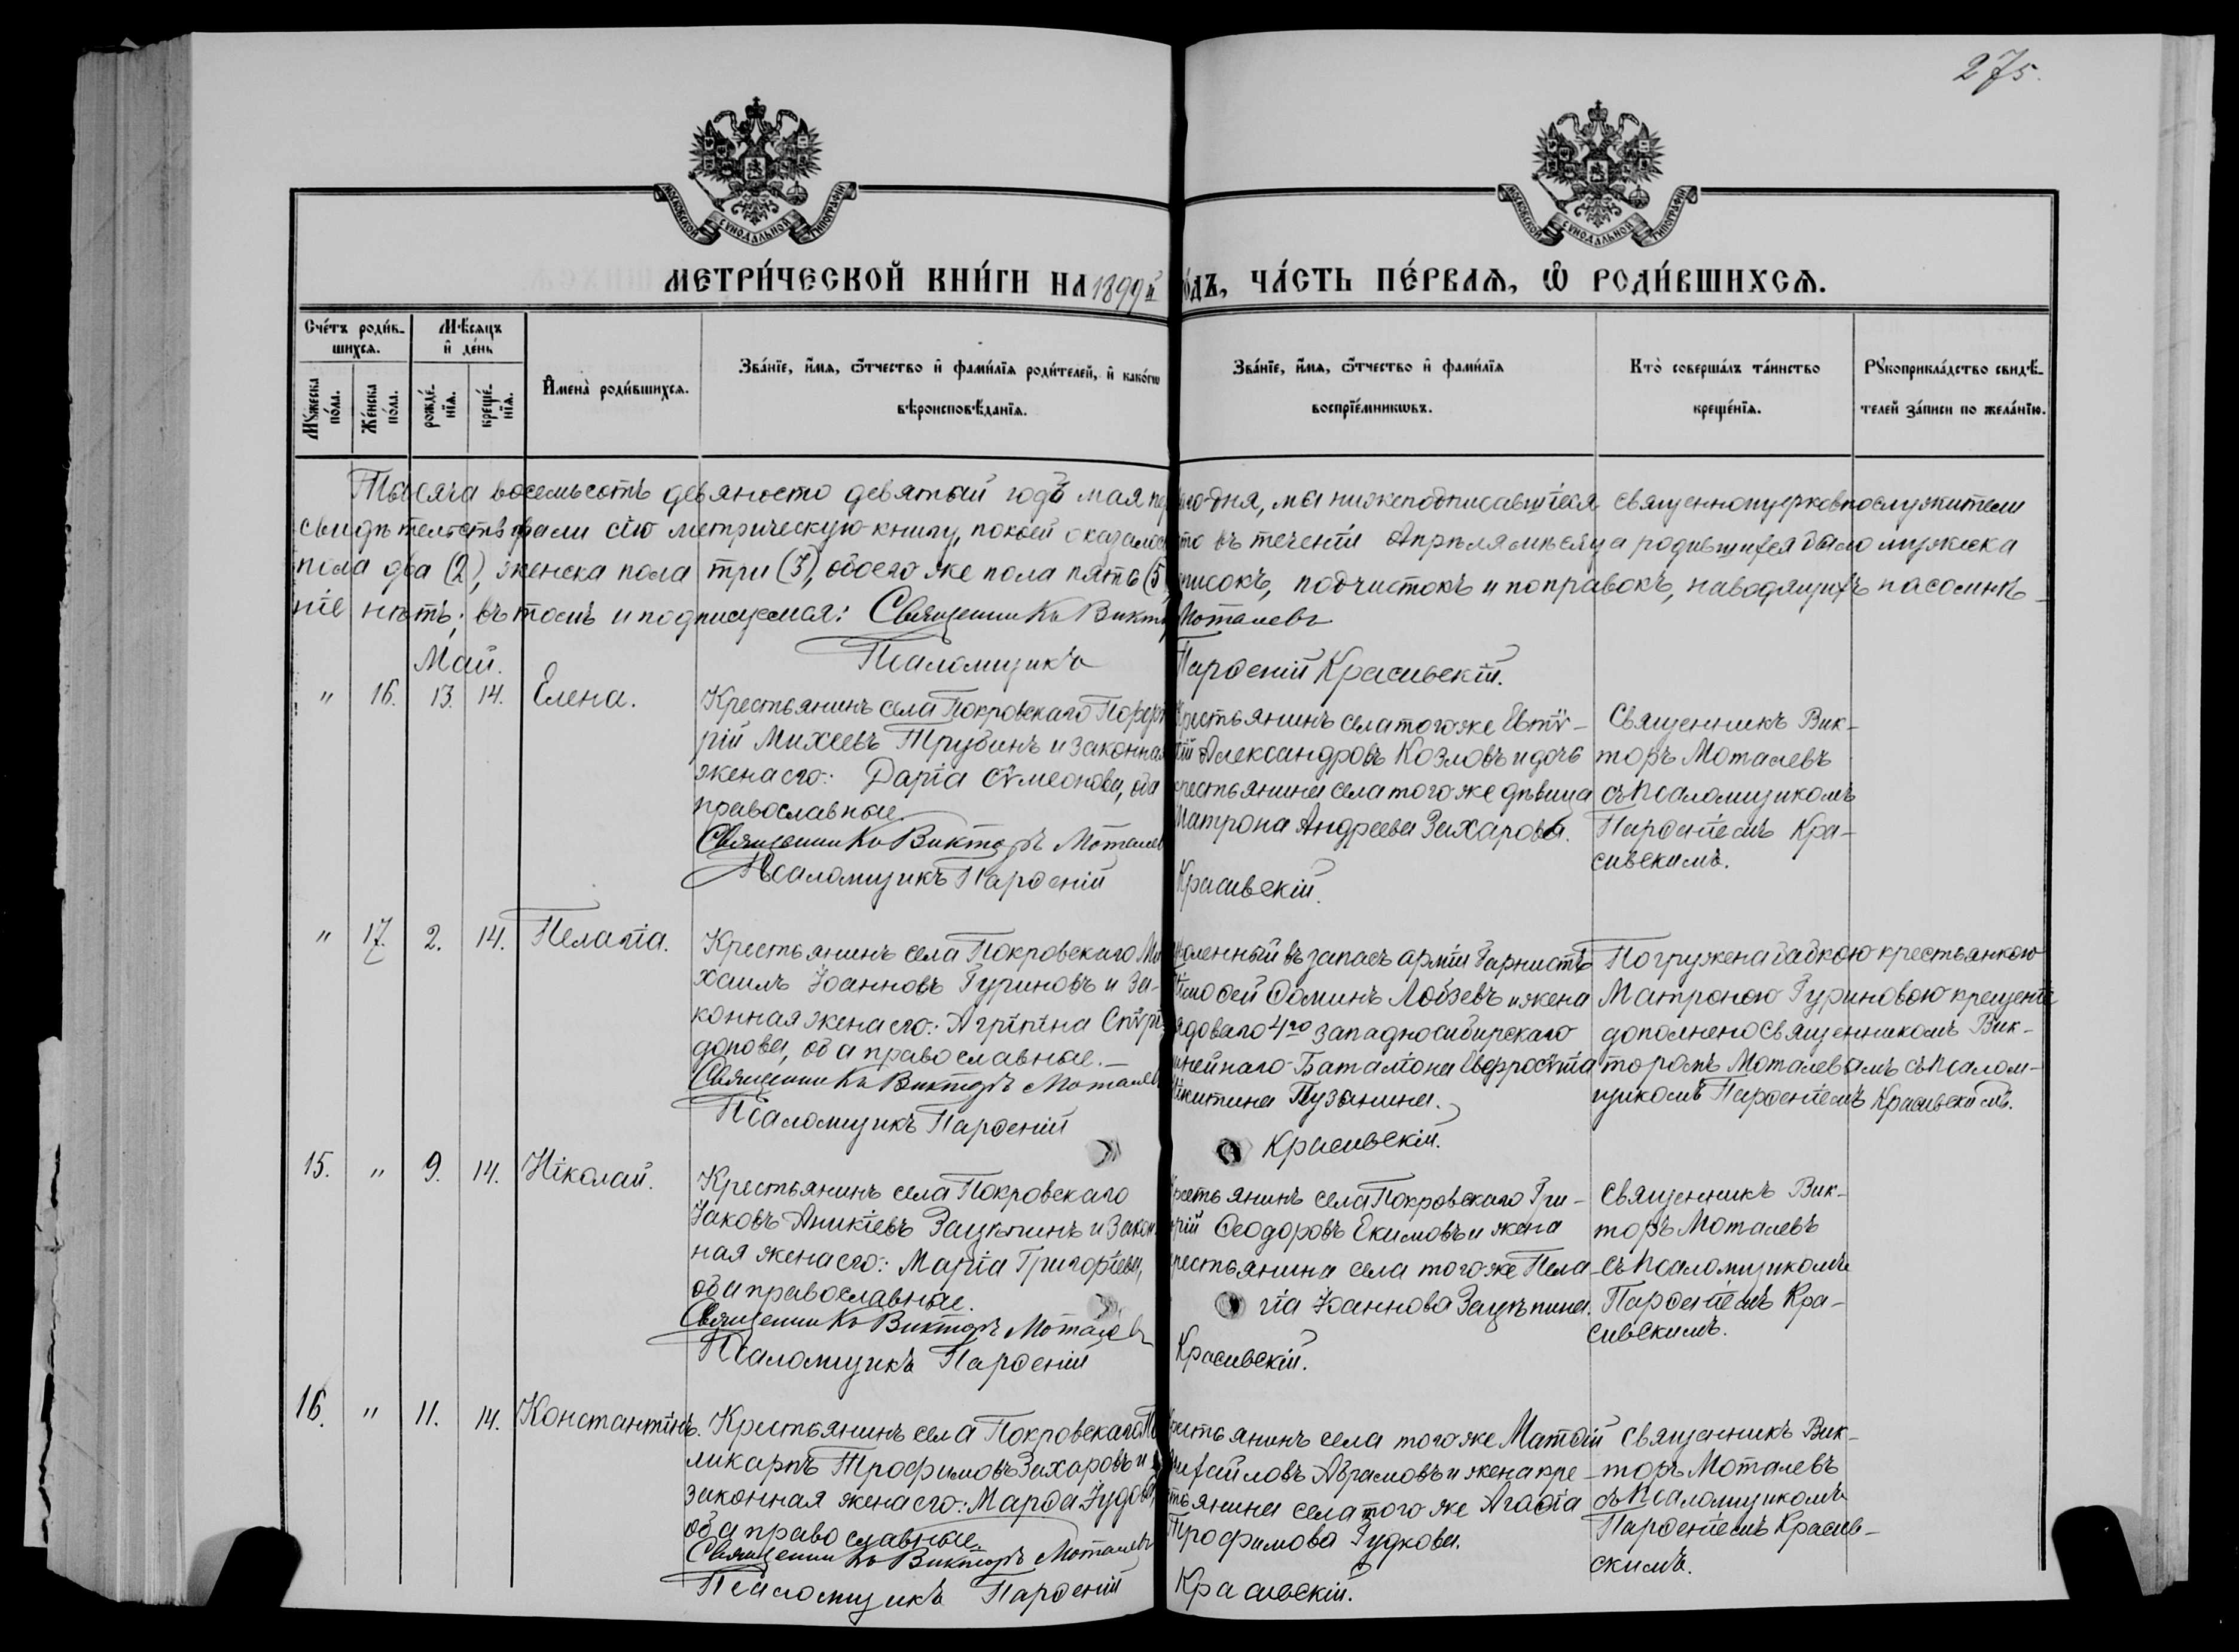 275.
МОСКОВСКОЙ СУНОДАЛЬНОЙ ТИПОГРАФІИ
МОСКОВСКОЙ СУНОДАЛЬНОЙ ТИПОГРАФІИ
МЕТРИ́ЧЕСКОЙ КНИ́ГИ НА 1899й го́дъ, ЧА́СТЬ ПЕ́РВАѦ, Ѽ РОДИ́ВШИХСѦ.
Сче́тъ роди́в-
шихсѧ.
Мѣсѧцъ
и҆ де́нь
Мꙋ́жеска
по́ла.
Же́нска
по́ла.
рожде́-
нїѧ.
креще́-
нїѧ.
И҆мена̀ роди́вшихсѧ.
Зва́нїе, и҆́мѧ, ѻ҆́тчество и҆ фами́лїѧ роди́телей, и҆ како́гѡ
вѣроисповѣ́данїѧ.
Зва́нїе, и҆́мѧ, ѻ҆́тчество и҆ фами́лїѧ
воспрїе́мникѡвъ.
Кто̀ соверша́лъ та́инство
креще́нїѧ.
Рꙋкоприкла́дство свидѣ́-
телей за́писи по жела́нїю.
Тысяча восемьсотъ девяносто девятый годъ мая перваго дня, мы нижеподписавшіеся священноцерковнослужители
свидѣтельствовали сію метрическую книгу, по коей оказалось что въ теченіи Апрѣля мѣсяца родившихся было мужеска
пола два (2), женска пола три (3), обоего же пола пять (5), описокъ, подчистокъ и поправокъ, наводящихъ на сомнѣ-
ніе нѣтъ; въ томъ и подписуемся: Священникъ Викторъ Моталевъ
Псаломщикъ Парѳеній Красивскій.
Май.
" 16. 13. 14. Елена.
Крестьянинъ села Покровскаго Порфи-
рій Михеевъ Трубинъ и законная
жена его: Дарія Сѵмеонова, оба
православные.
Священникъ Викторъ Моталевъ
Псаломщикъ Парѳеній Красивскій.
Крестьянинъ села того же Евтѵ-
хій Александровъ Козловъ и дочь
крестьянина села того же дѣвица
Матрона Андреева Захарова.
Священникъ Вик-
торъ Моталевъ
съ Псаломщикомъ
Парѳеніемъ Кра-
сивскимъ.
" 17. 2. 14. Пелагія.
Крестьянинъ села Покровскаго Ми-
хаилъ Іоанновъ Гуриновъ и за-
конная жена его: Агріпіна Спѵри-
донова, оба православные.-
Священникъ Викторъ Моталевъ
Псаломщикъ Парѳеній Красивскій.
Уволенный въ запасъ арміи Горнистъ
Тімоѳей Ѳоминъ Лобзевъ и жена
рядоваго 4го западносибирскаго
линейнаго Баталіона Евфросѵнія
Никитина Пузанина.
Погружена бабкою крестьянкою
Матроною Гуриновою крещеніе
дополнено священникомъ Вик-
торомъ Моталевымъ съ Псалом-
щикомъ Парѳеніемъ Красивскимъ.
15. " 9. 14. Ніколай.
Крестьянинъ села Покровскаго
Іаковъ Аникіевъ Зацѣпинъ и закон-
ная жена его: Марія Григоріева,
оба православные.
Священникъ Викторъ Моталевъ
Псаломщикъ Парѳеній Красивскій.
Крестьянинъ села Покровскаго Гри-
горій Ѳеодоровъ Екимовъ и жена
крестьянина села того же Пела-
гія Іоаннова Зацѣпина.
Священникъ Вик-
торъ Моталевъ
съ Псаломщикомъ
Парѳеніемъ Кра-
сивскимъ.
16. " 11. 14. Константінъ.
Крестьянинъ села Покровскаго По-
ликарпъ Трофимовъ Захаровъ и
законная жена его: Марѳа Іудова,
оба православные.
Священникъ Викторъ Моталевъ
Псаломщикъ Парѳеній Красивскій.
Крестьянинъ села того же Матѳій
Михайловъ Абрамовъ и жена кре-
стьянина села того же Агаѳія
Трофимова Гудкова.
Священникъ Вик-
торъ Моталевъ
съ Псаломщикомъ
Парѳеніемъ Красив-
скимъ.